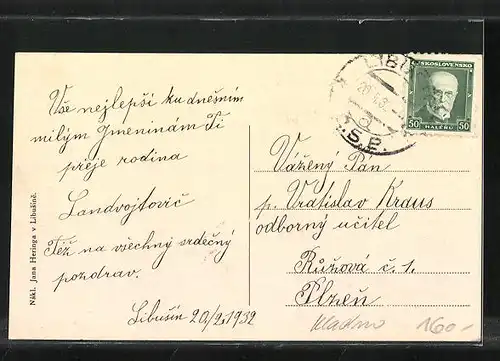 Vše nejlepší ku dnešním
milým Jmeninám Ti
přeje rodina
Landvojtovič
Též na všechny srdečný
pozdrav.
Libušín 20/2 1932
Nákl. Jana Heringa v Libušíně.
ČESKOSLOVENSKO
50 HALÉŘŮ 50
Vážený Pán
p. Vratislav Kraus
odborný učitel
Růžová č. 1.
Plzeň
Kladno 160-